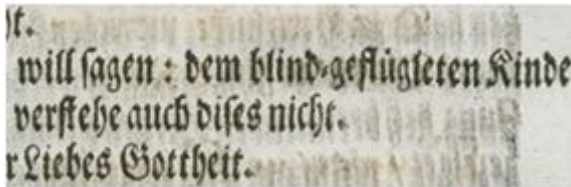 ht.
will ſagen : dem blind-geflügleten Kinde
verſtehe auch diſes nicht.
r Liebes Gottheit.